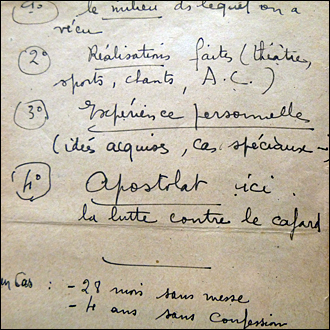 1° le milieu ds lequel on a
vécu
2° Réalisations faites (théâtre,
sports, chants, A.C.)
3° Expérience personnelle
(idées acquises, cas spéciaux
4° Apostolat ici
la lutte contre le cafard
Cas : - 28 mois sans messe
- 4 ans sans confession